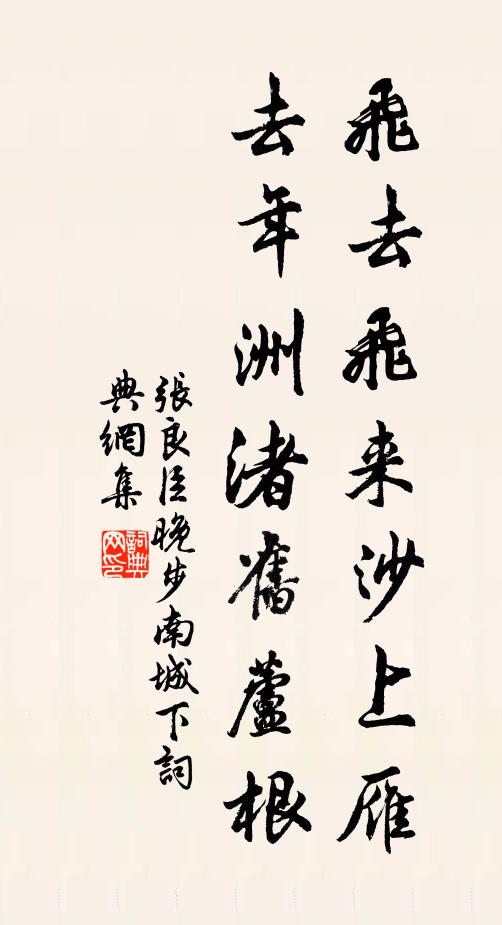 飛去飛来沙上雁
去年洲渚舊蘆根
張良臣晚步南城下詞
典網集
詞典网印